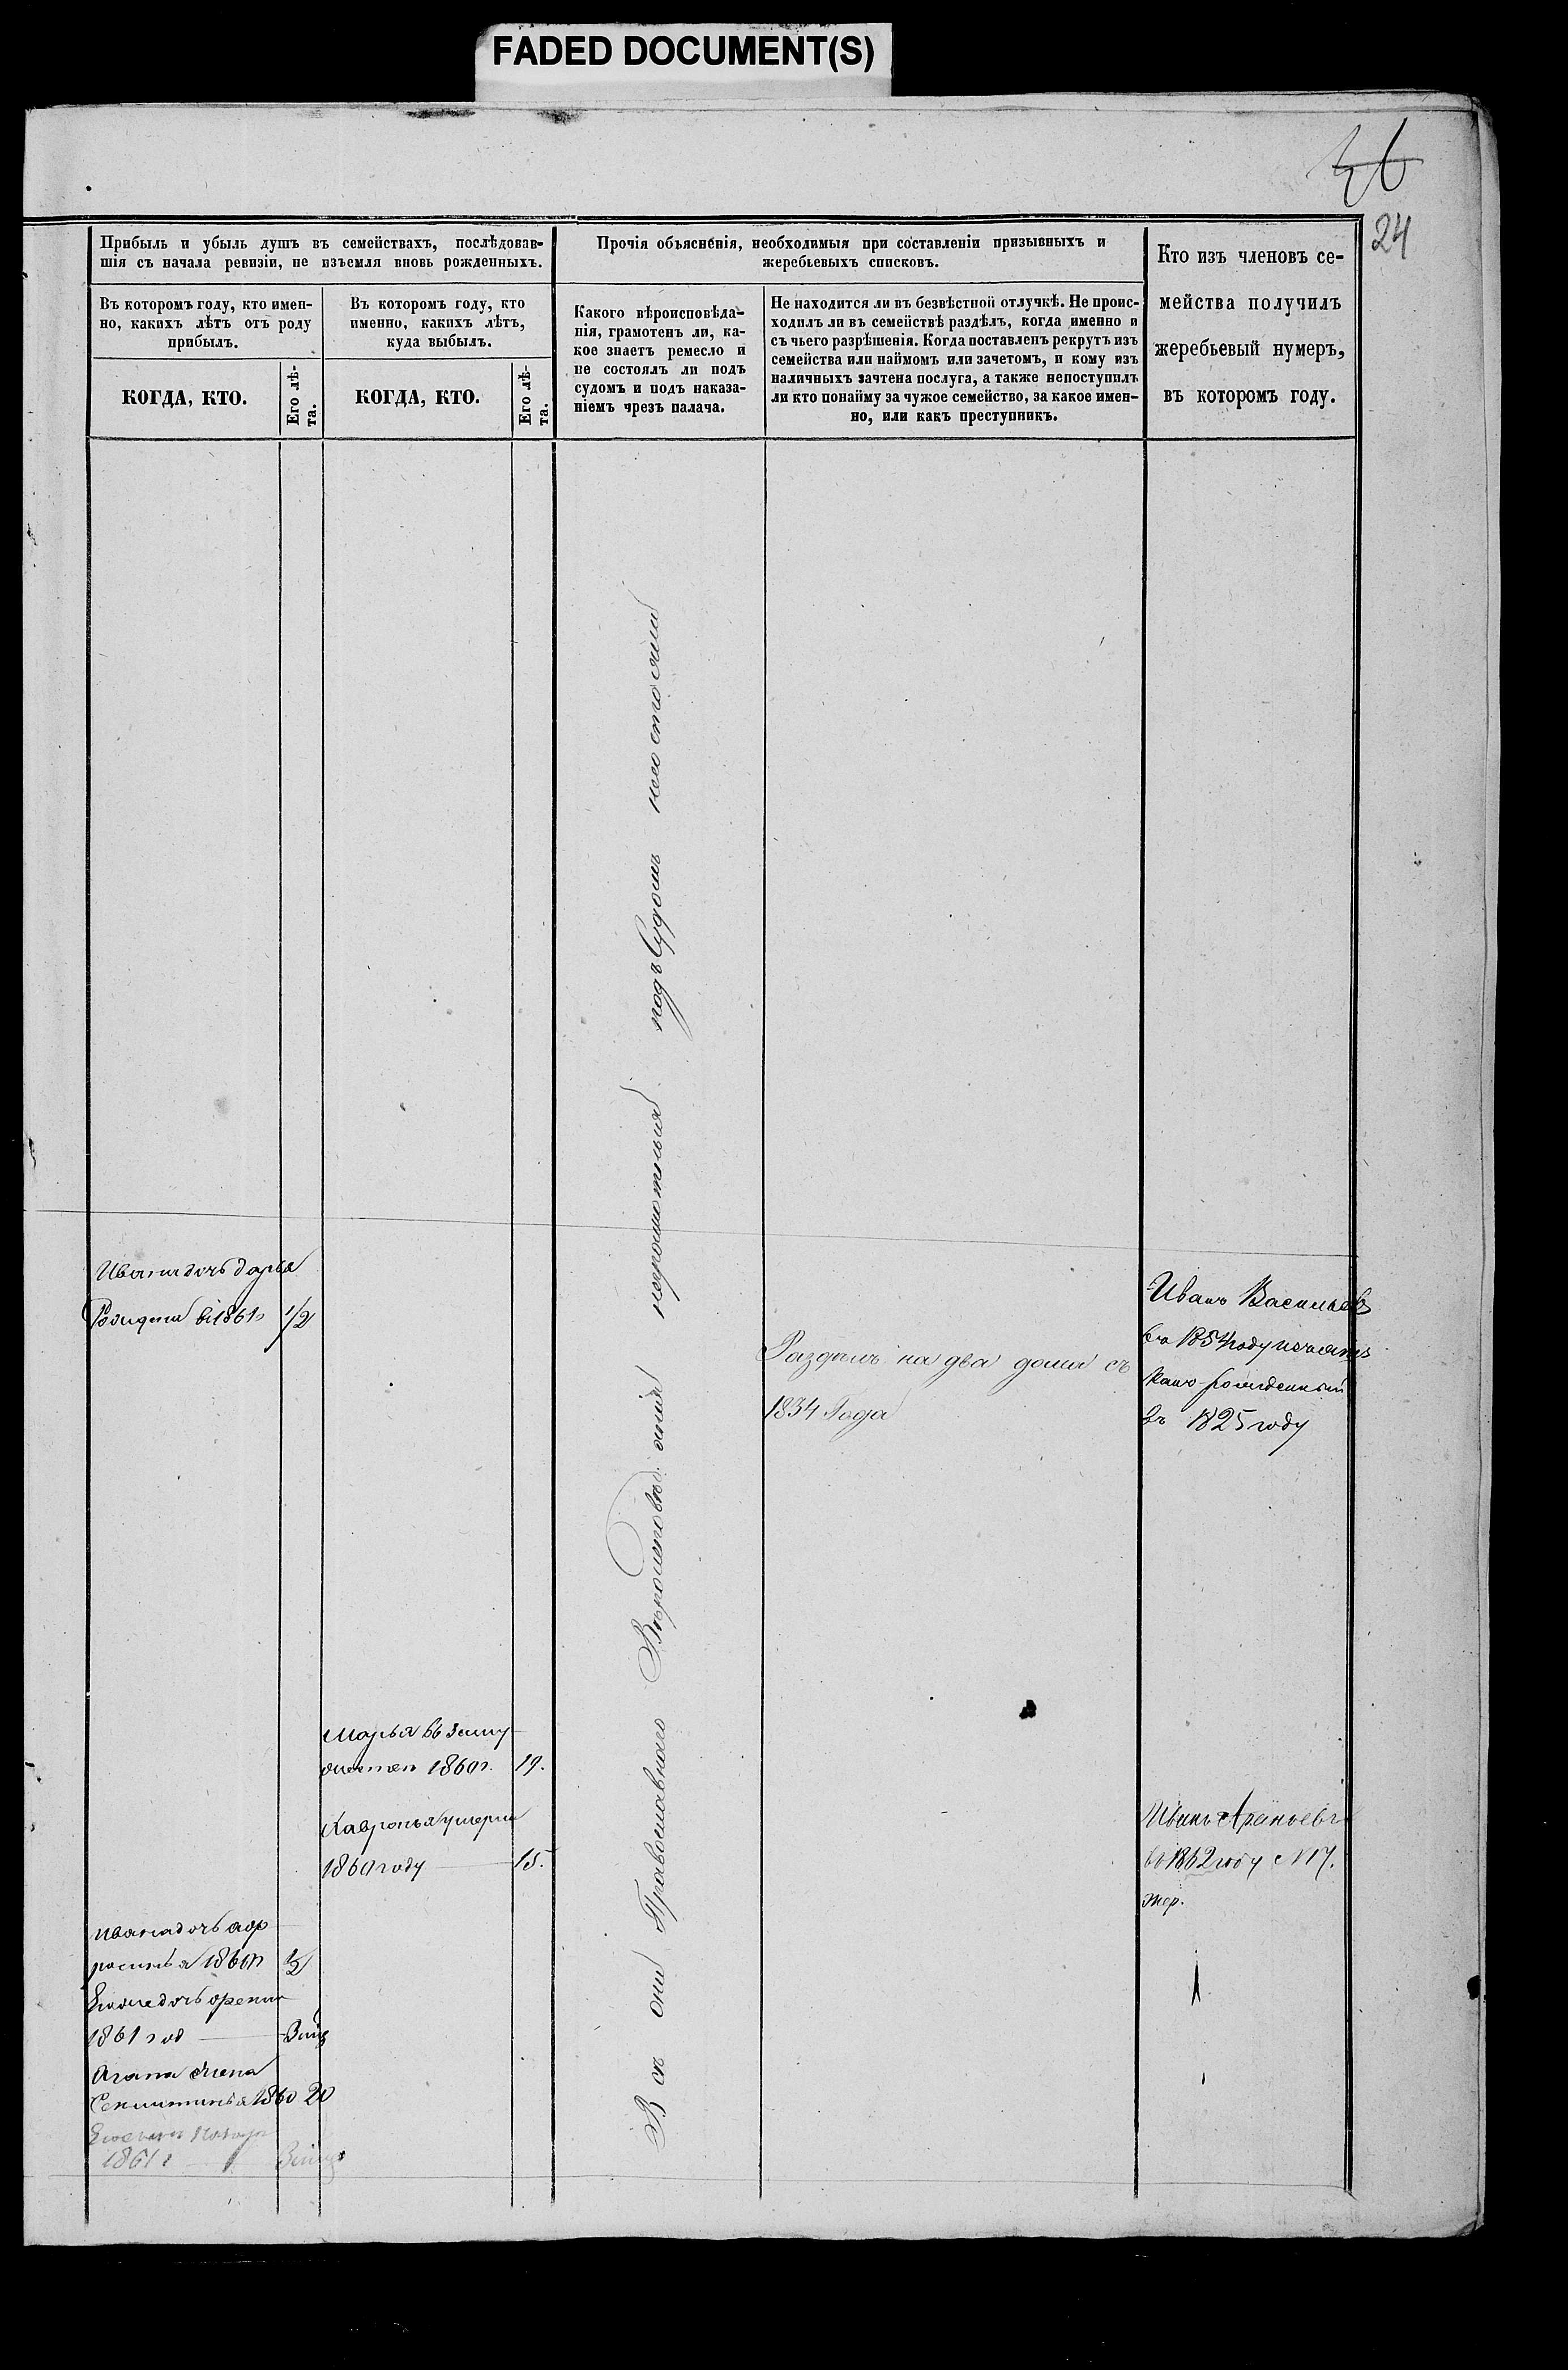 FADED DOCUMENT(S)
24
Прибыль и убыль душъ въ семействахъ, послѣдовав-
шія съ начала ревизіи, не изъемля вновь рожденныхъ.
Въ которомъ году, кто имен-
но, какихъ лѣтъ отъ роду
прибылъ.
КОГДА, КТО.
Его лѣ-
та.
Въ которомъ году, кто
именно, какихъ лѣтъ,
куда выбылъ.
КОГДА, КТО.
Его лѣ-
та.
Прочія объясненія, необходимыя при составленіи призывныхъ и
жеребьевыхъ списковъ.
Какого вѣроисповѣда-
нія, грамотенъ ли, ка-
кое знаетъ ремесло и
не состоялъ ли подъ
судомъ и подъ наказа-
ніемъ чрезъ палача.
Не находится ли въ безвѣстной отлучкѣ. Не проис-
ходилъ ли въ семействѣ раздѣлъ, когда именно и
съ чьего разрѣшенія. Когда поставленъ рекрутъ изъ
семейства или наймомъ или зачетомъ, и кому изъ
наличныхъ зачтена послуга, а также непоступилъ
ли кто понайму за чужое семейство, за какое имен-
но, или какъ преступникъ.
Кто изъ членовъ се-
мейства получилъ
жеребьевый нумеръ,
въ которомъ году.
Ивана дочь дарья
1861 1/2
Марья въ заму
жество 1860г. 19.
Хавронья умерла
1860 году 15.
Ивана дочь аф
росинья 1861 1/2
1861 год
жена
1860 20
1861 г
Все они Православного Вероисповеданія неграмотныя подъ Судомъ несостояли
Разделъ на два дома съ
1834 Года
Иванъ Васильевъ
въ 1854 году
какъ рожденный
въ 1825 году
Иванъ
въ 1862 году N 17.
жер.